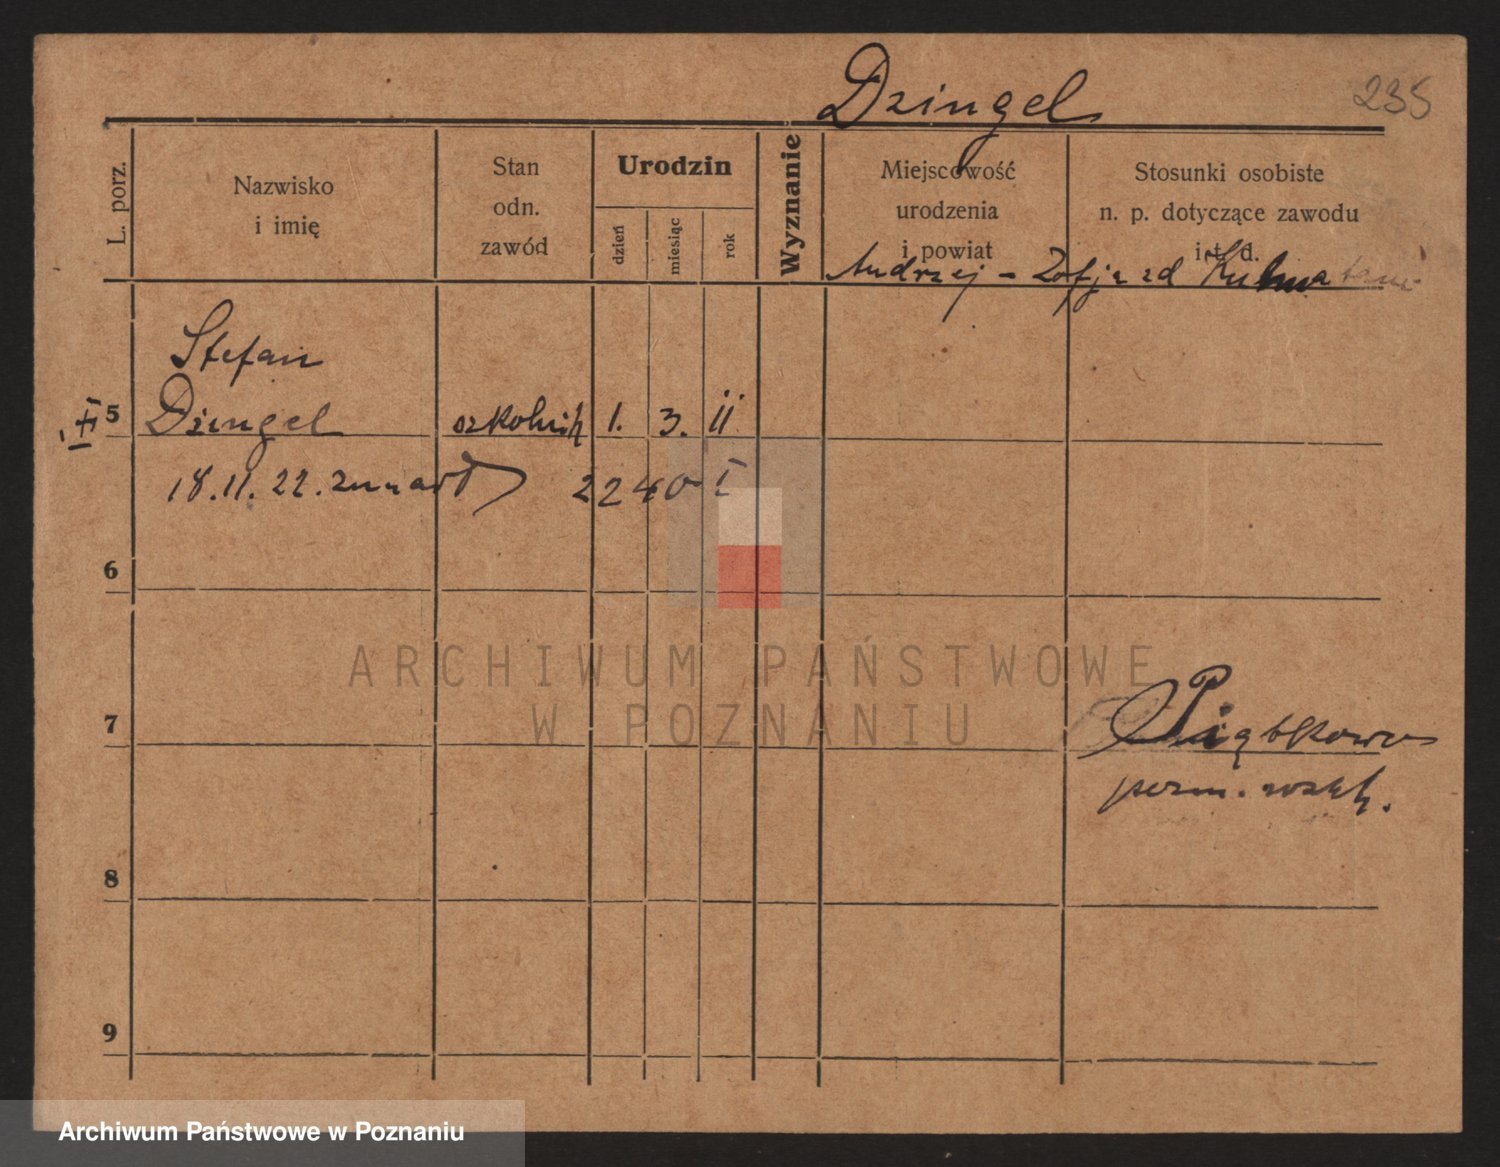 Dzingel
235
L. porz.
Nazwisko
i imię
Stan
odn.
zawód
Urodzin
dzień
miesiąc
rok
Wyznanie
Miejscowość
urodzenia
i powiat
Stosunki osobiste
n. p. dotyczące zawodu
i t. d.
Andrzej - Zofja zd
Stefan
5 Dzingel szkolnik 1. 3. 11
18.11.22. zmarł 2240 I
6
ARCHIWUM PAŃSTWOWE
W POZNANIU
7
Piątkowo
8
9
Archiwum Państwowe w Poznaniu